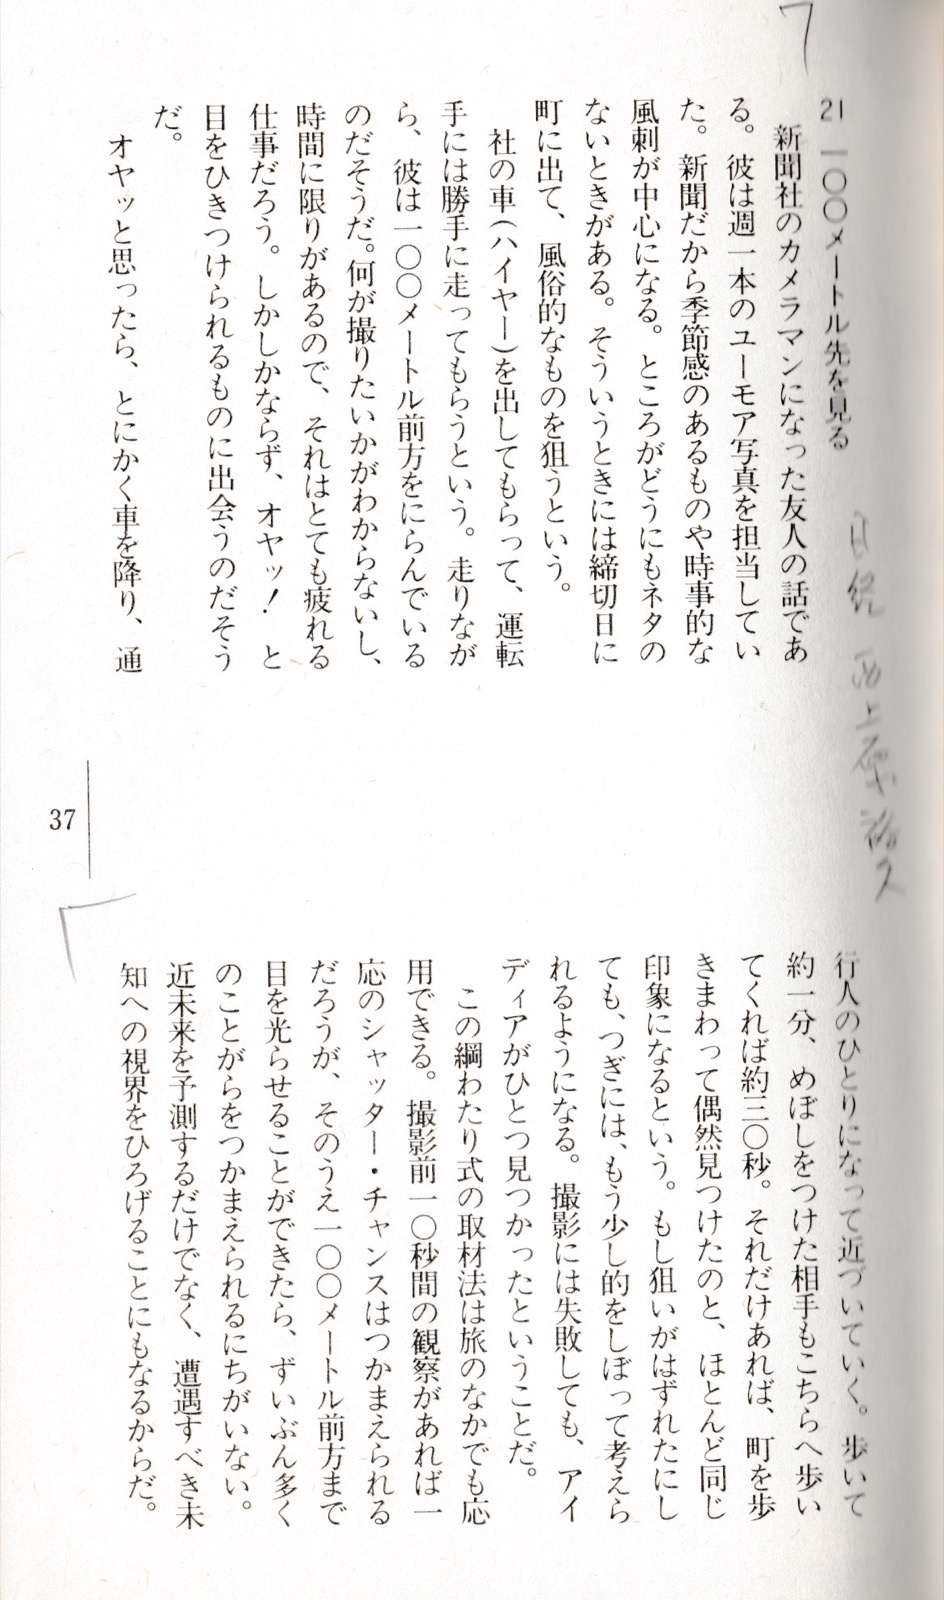 21 一〇〇メートル先を見る
新聞社のカメラマンになった友人の話であ
る。彼は週一本のユーモア写真を担当してい
た。新聞だから季節感のあるものや時事的な
風刺が中心になる。ところがどうにもネタの
ないときがある。そういうときには締切日に
町に出て、風俗的なものを狙うという。
社の車(ハイヤー)を出してもらって、運転
手には勝手に走ってもらうという。走りなが
ら、彼は一〇〇メートル前方をにらんでいる
のだそうだ。何が撮りたいかがわからないし、
時間に限りがあるので、それはとても疲れる
仕事だろう。しかしかならず、オヤッ! と
目をひきつけられるものに出会うのだそう
だ。
オヤッと思ったら、とにかく車を降り、通
行人のひとりになって近づいていく。歩いて
約一分、めぼしをつけた相手もこちらへ歩い
てくれば約三〇秒。それだけあれば、町を歩
きまわって偶然見つけたのと、ほとんど同じ
印象になるという。もし狙いがはずれたにし
ても、つぎには、もう少し的をしぼって考えら
れるようになる。撮影には失敗しても、アイ
ディアがひとつ見つかったということだ。
この綱わたり式の取材法は旅のなかでも応
用できる。撮影前一〇秒間の観察があれば一
応のシャッター・チャンスはつかまえられる
だろうが、そのうえ一〇〇メートル前方まで
目を光らせることができたら、ずいぶん多く
のことがらをつかまえられるにちがいない。
近未来を予測するだけでなく、遭遇すべき未
知への視界をひろげることにもなるからだ。
37
日経